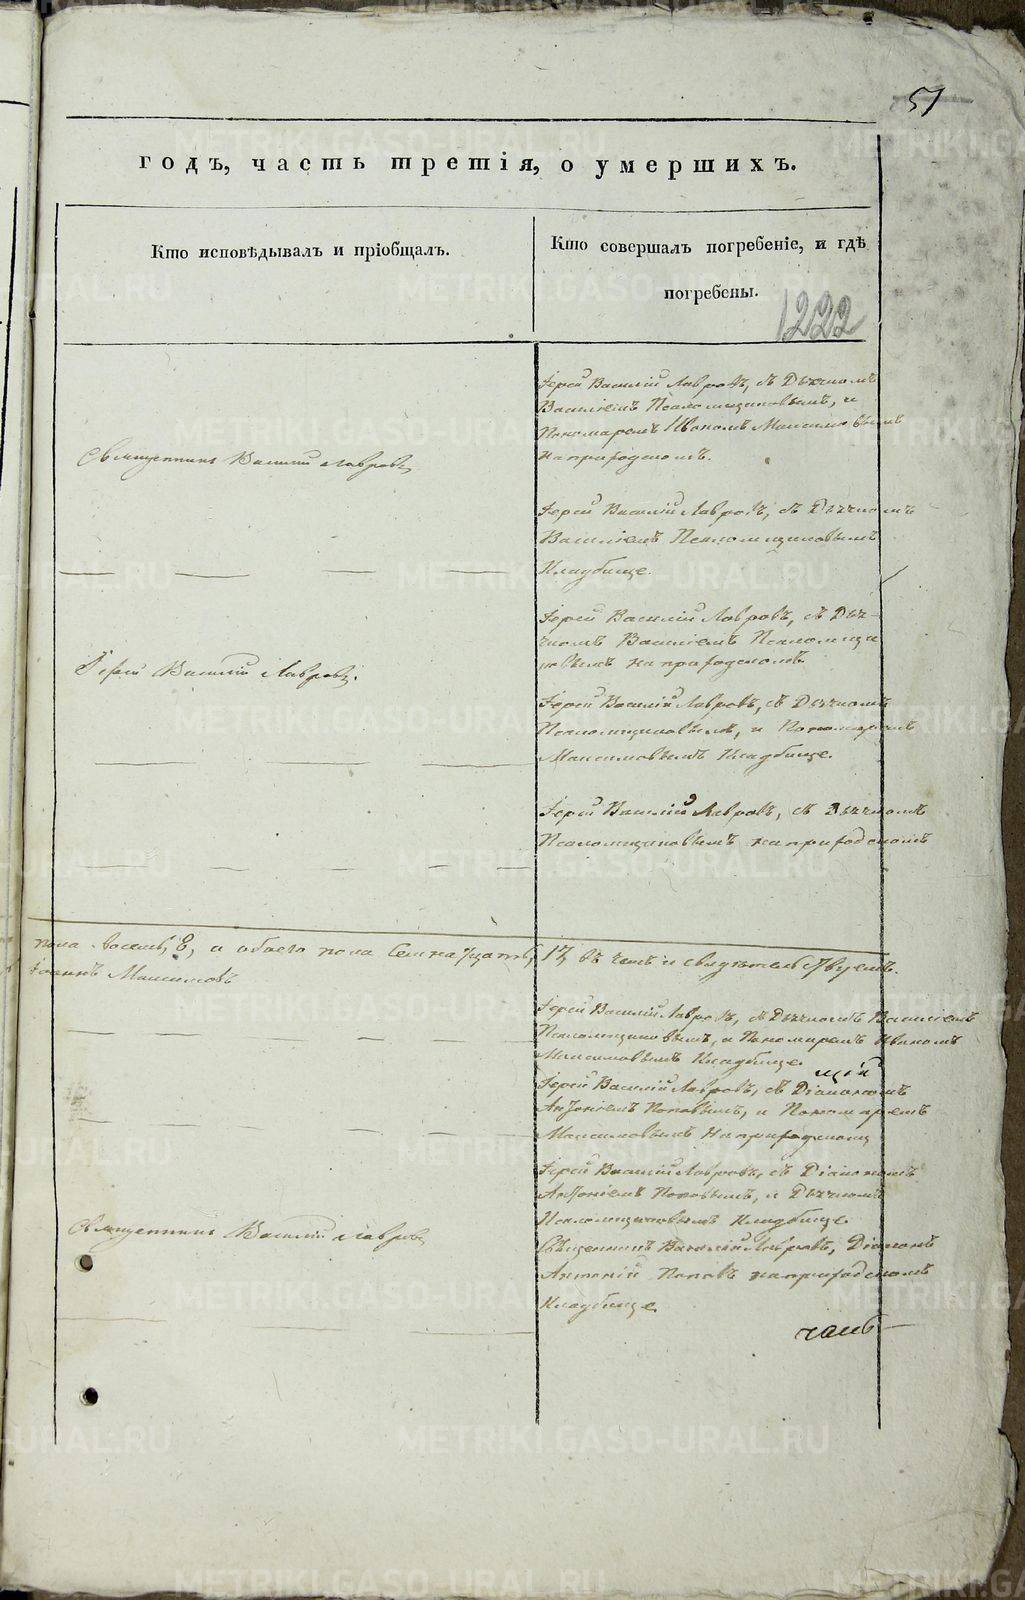 51
годъ, часть третія, о умершихъ.
Кто исповѣдывалъ и пріобщалъ.
Кто совершалъ погребеніе, и гдѣ
погребены.
1222
Іерей Василій Лавровъ, съ Дьячкомъ
Василіемъ Псаломщиковымъ, и
Пономаремъ Иваномъ Максимовымъ
на приходскомъ.
Священникъ Василий Лавровъ
Іерей Василій Лавровъ, съ Дьячкомъ
Василіемъ Псаломщиковымъ
Кладбище.
Іерей Василій Лавровъ, съ Дья-
чкомъ Василіемъ Псаломщи
ковымъ на приходскомъ
Іерей Василій Лавровъ.
Іерей Василій Лавровъ, съ Дьячкомъ
Псаломщиковымъ, и Пономаремъ
Максимовымъ Кладбище.
Іерей Василій Лавровъ, съ Дьячкомъ
Псаломщиковымъ на приходскомъ
пола восемь, 8, и обоего пола семнадцать, 17, въ чемъ и свидѣтельствуемъ.
Максимовъ
Іерей Василій Лавровъ, съ Дьячкомъ Василіемъ
Псаломщиковымъ, и Пономаремъ Иваномъ
Максимовымъ Кладбище
Іерей Василій Лавровъ, съ Діакономъ
Антоніемъ Поповымъ, и Пономаремъ
Максимовымъ на приходскомъ
Іерей Василій Лавровъ, съ Діакономъ
Антоніемъ Поповымъ, и Дьячкомъ
Псаломщиковымъ Кладбище
Священникъ Василий Лавровъ
Священникъ Василій Лавровъ, Діаконъ
Антоній Поповъ на приходскомъ
Кладбище
часть
METRIKI.GASO-URAL.RU